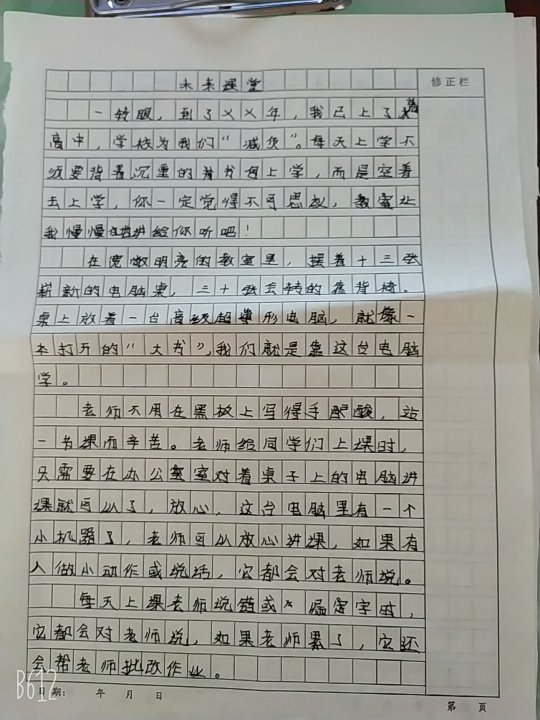 未来课堂
修正栏
一转眼，到了乂乂年，我已上了
高中，学校为我们“减负”。每天上学不
须要背着沉重的着书包上学，而是空着
去上学，你一定觉得不可思议，就让
我慢慢讲给你听吧！
在宽敞明亮的教室里，摆着十三张
崭新的电脑桌，三十张会转的靠背椅。
桌上放着一台高级超形电脑，就像一
本打开的“大书”，我们就是靠这台电脑
学。
老师不用在黑板上写得手酸，站
一节课而辛苦。老师给同学们上课时，
只需要在办公室对着桌子上的电脑讲
课就可以了，放心，这台电脑里有一个
小机器了，老师可以放心讲课，如果有
人做小动作或说话，它都会对老师说。
每天上课老师说错或字时，
它都会对老师说，如果老师累了，它还
会帮老师批改作业。
日期： 年 月 日
第 页
B612